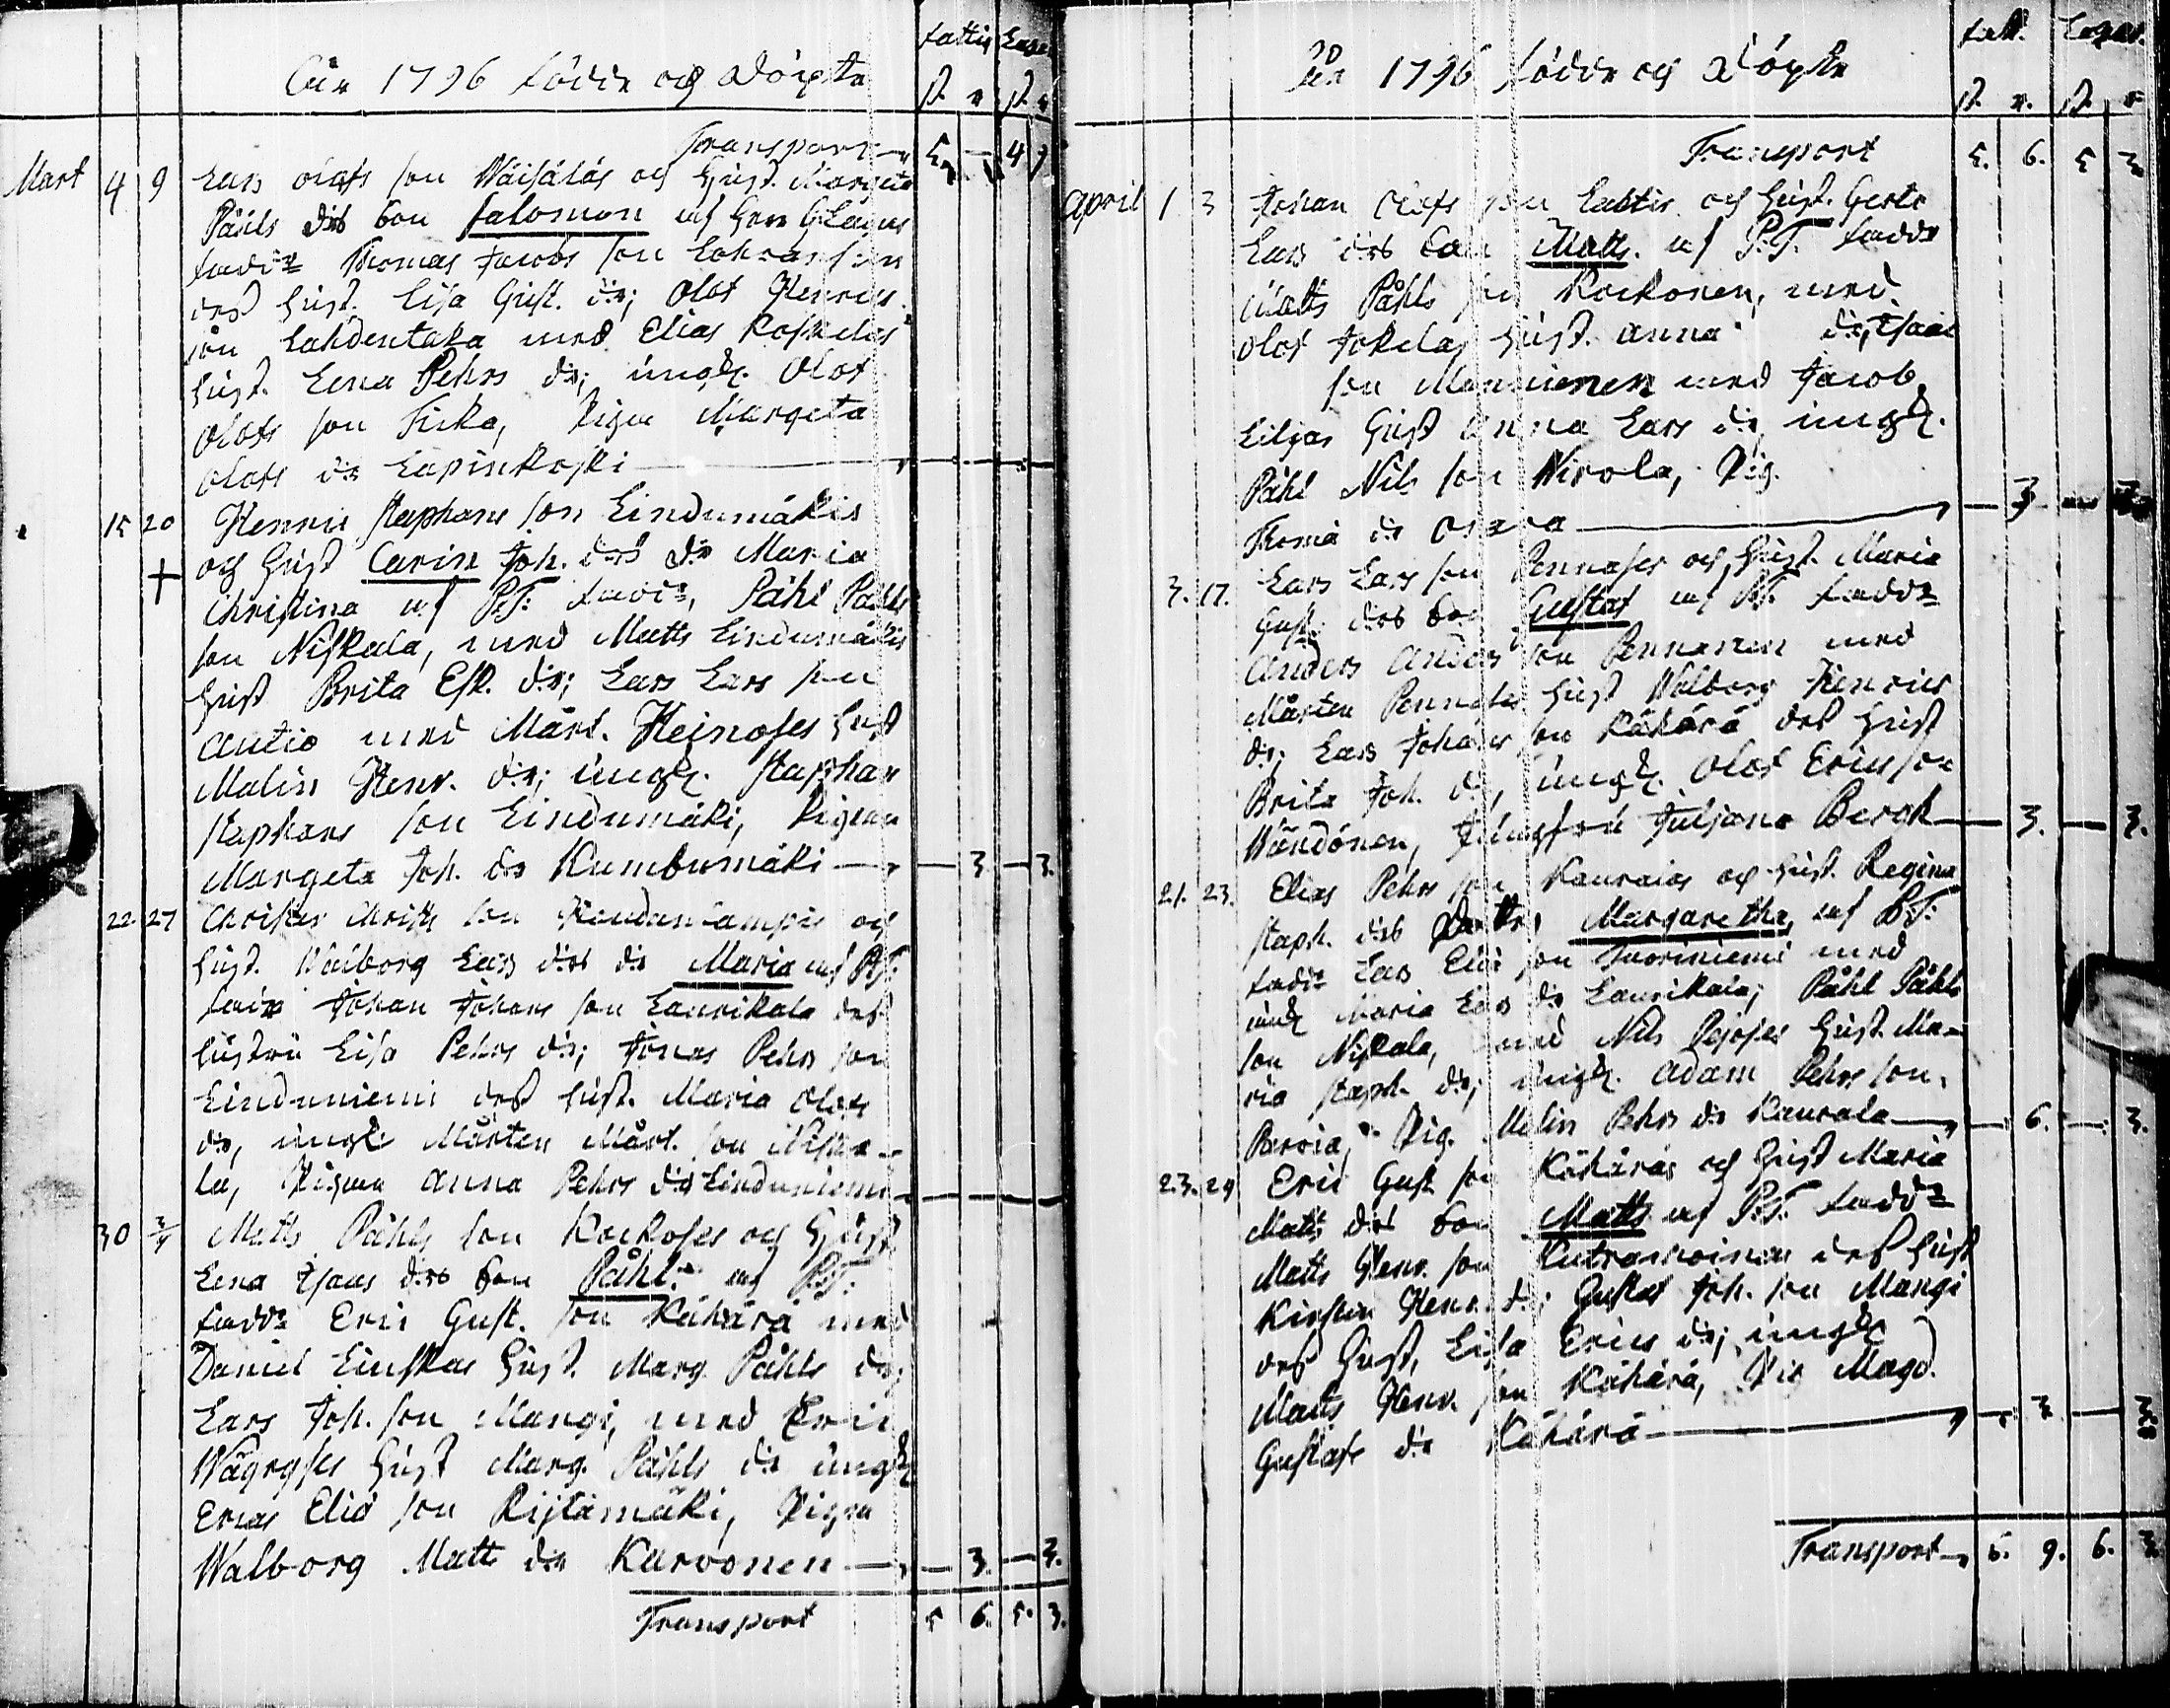 1796 födde och Döpte
Transport
Mart 4 9 Lars Olofs son Wäisäläs och Hust. Margeta
Påhls dotter son Salomon af
faddr Thomas Jacobs son
dess hust. Lisa Gust. dr; Olof Henrics
son Lahdentaka med Elias Koskelas
hust. Lena Pehrs dr; ungk. Olof
Olofs son Kirka, Pigan Margeta
Olofs dr Lapinkoski
15 20 Henric Staphans son Lindumäkis
och Hust Carin Joh. drs dr Maria
+ Christina af P.T: faddr, Påhl Påhls
son Niskala, med Matts Lindumäkis
Hust Brita Esk. dr; Lars Lars son
Autio med Mårt. Heinoses Hust
Malin Henr. dr; ungk. Staphan
Staphans son Lindumäki, Pigan
Margeta Joh. dr Kumbumäki — 3 — 3.
22. 27 Christer Christ. son och
hust. Walborg Lars drs dr Maria af P.T:
faddr Johan Johans son Laurikala dess
hustru Lisa Pehrs dr; Jonas Pehrs son
Linduniemi dess hust. Maria Olofs
dr, ungk Mårten Mårt. son Niska-
la, Pigan Anna Pehrs dr Linduniemi
30 3/4 Matts Påhls son Kockoses och Hust
Lena Isacs drs son Påhl. af P.T.
faddr Eric Gust. son Kähärä med
Daniel Hust. Marg. Påhls dr;
Lars Joh. son Mangi, med Eric
Wäyryses Hust Marg. Påhls dr ungk
Erias Elia son Rijtämäki, Pigan
Walborg Matts dr Karvonen — 3. — 3.
Transport 5 6. 5. 3.
1796 födde och Döpte
Transport 5. 6. 5 3
April 1 3 Johan Olofs son Lattis och Hust. Gerto
Lars drs son Matts. af P.T. faddr
Matts Påhls son Kockonen, med
Olof Jokelas Hust. Anna dr, Isaac
son Manninen med Jacob
Liljas Hust Anna Lars dr, ungk.
Påhl Nils son Nirola, Pig.
Thoma dr Osara — 3
3. 17. Lars Lars son Pennases och Hust. Maria
Gust. drs son Gustaf af P.T. faddr
Anders Anders son Pennanen med
Mårten Pennases hust Walborg Henrics
dr; Lars Johans son Kähärä dess Hust
Brita Joh. dr, ungk. Olof Erics son
Wändönen, Jungfru Juljana Bergh — 3. — 3.
21. 23. Elias Pehrs son Kauraias och Hust. Regina
Staph. drs Dottr Margaretha, af P.T:
faddr Lars Elia son Tuoriniemi med
Maria Lars dr Laurikala; Påhl Påhls
son Niskala, med Nils Hust. Ma-
ria Staph. dr; ungk. Adam Pehrs son.
Parvia, Pig. Malin Pehrs dr Kaurala — 6. — 3.
23. 24 Eric Gust. son Kähäräs och Hust Maria
Matts drs son Matts af P.T. faddr
Matts Henr. son dess Hust
Kirstin Henr. dr; Gustaf Joh. son Mangi
dess Hust, Lisa Erics dr; ungk
Matts Henr. son Kähärä, Pig Magd.
Gustafs dr Kähärä
Transport 5. 9. 6. 3